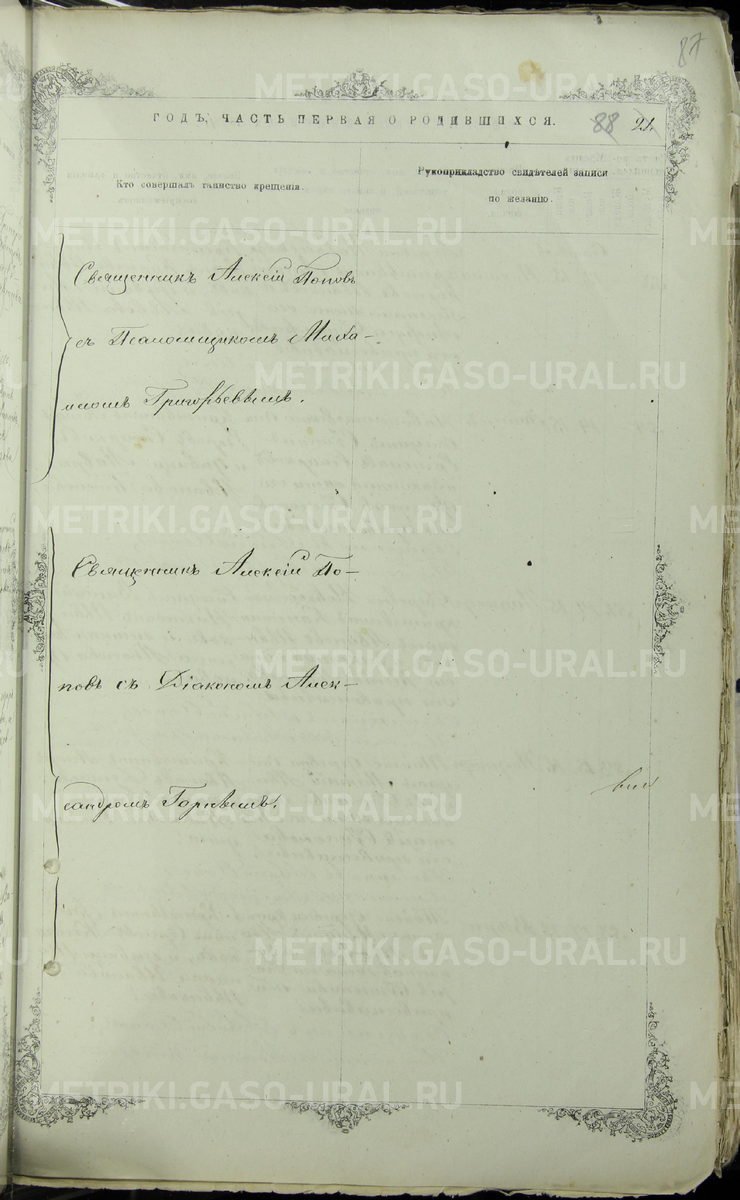 87
ГОДЪ, ЧАСТЬ ПЕРВАЯ О РОДИВШИХСЯ.
88 21.
Кто совершалъ таинство крещенія.
Рукоприкладство свидѣтелей записи
по желанію.
Священникъ Алексій Поповъ
съ Псаломщикомъ Миха-
иломъ Григорьевымъ.
Священникъ Алексій По-
повъ съ Діакономъ Алек-
сандромъ
METRIKI.GASO-URAL.RU